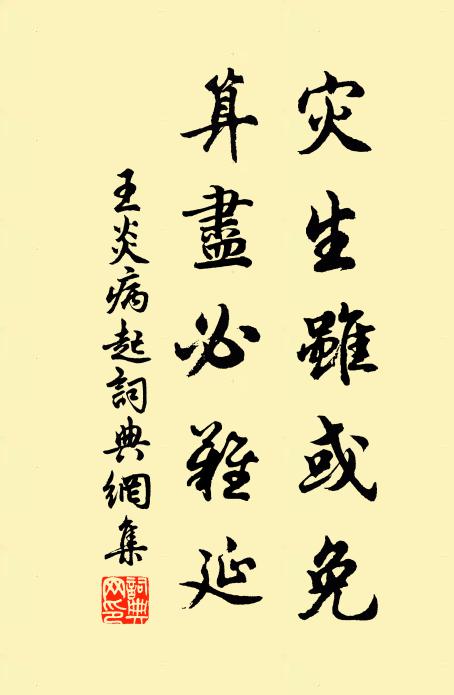 灾生雖或免
算盡必難延
王炎病起詞典網集
詞典
网印